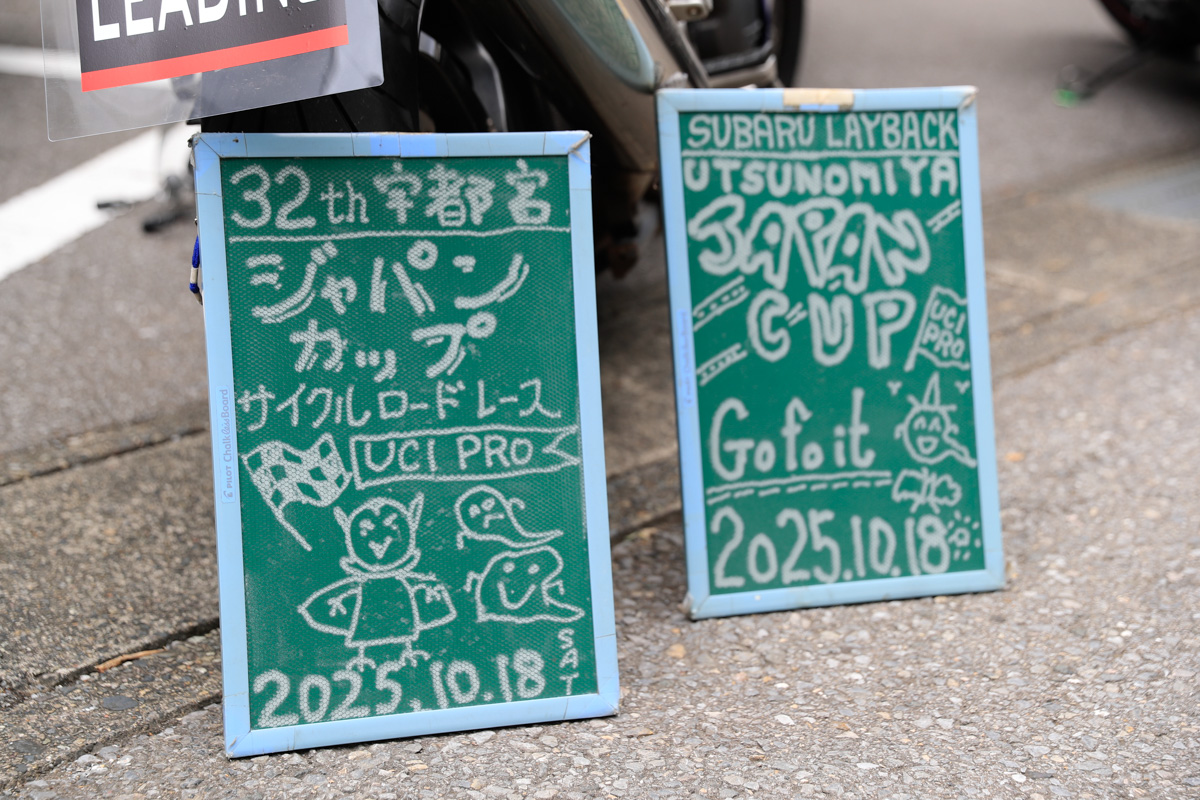 LEADING
32th 宇都宮
ジャパン
カップ
サイクルロードレース
UCI PRO
2025.10.18
SAT
PILOT Chalkless Board
SUBARU LAYBACK
UTSUNOMIYA
JAPAN
CUP
UCI
PRO
Go fo it
2025.10.18